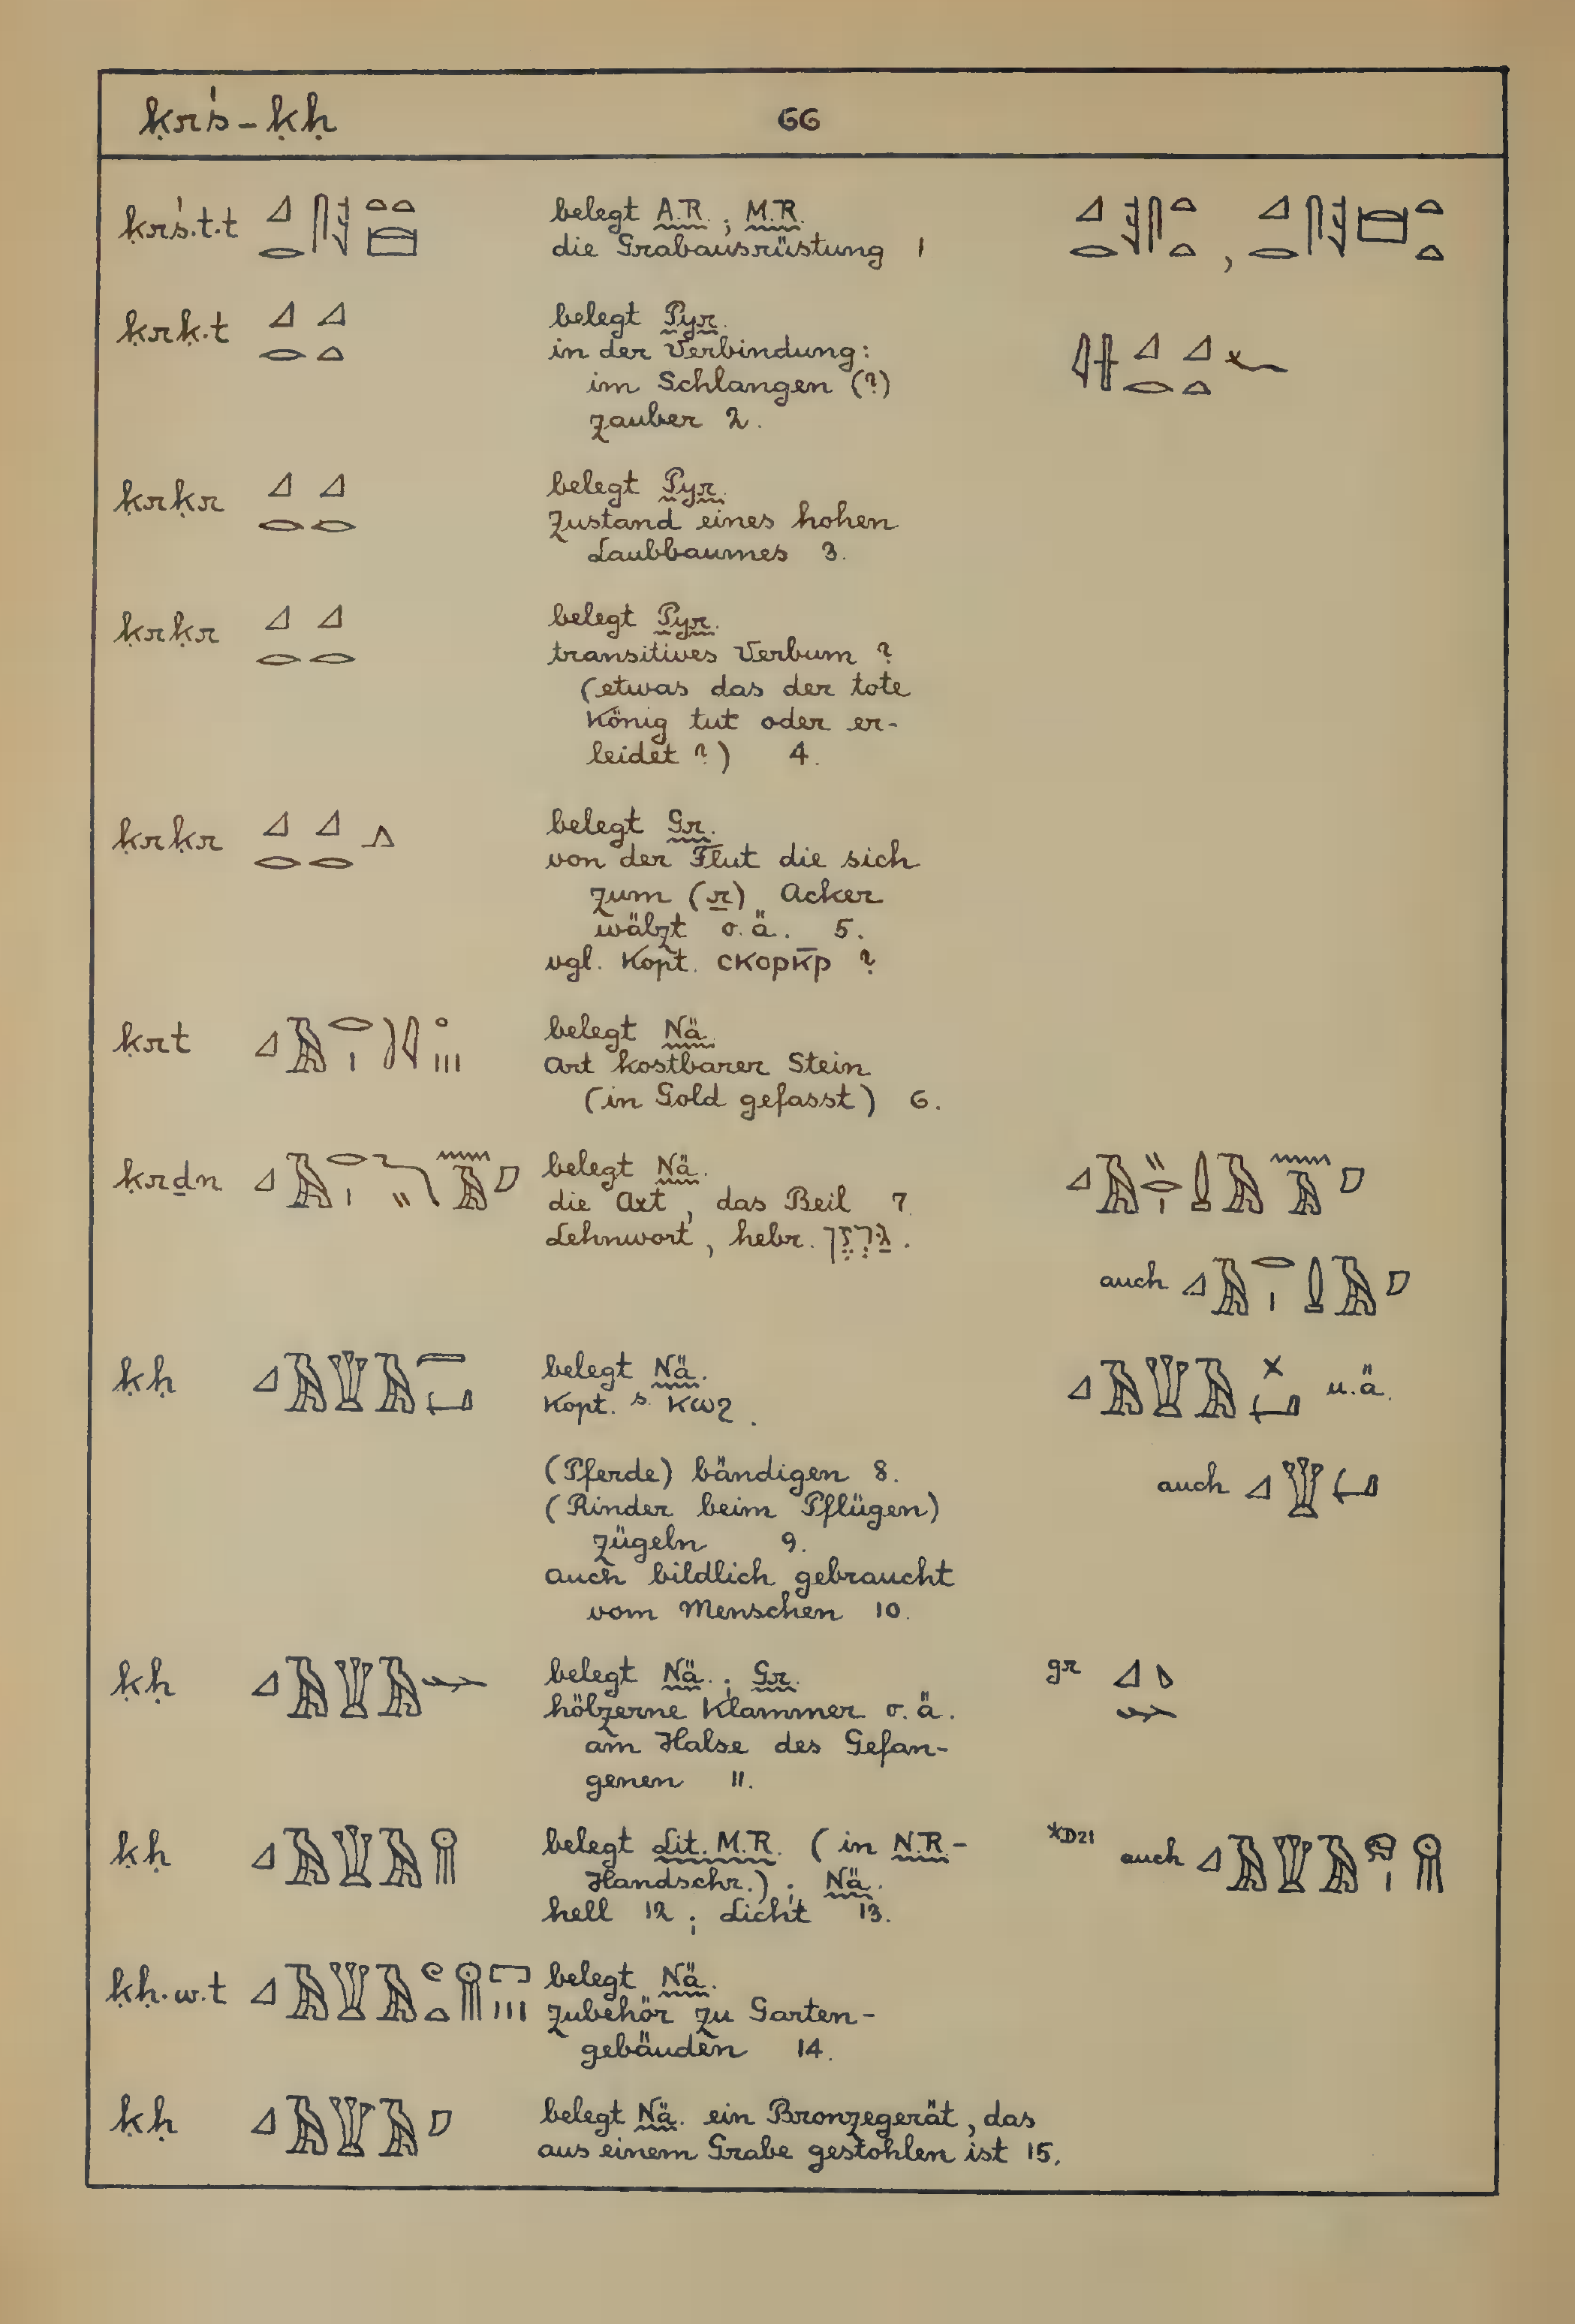 ḳrś-ḳḥ 66
ḳrś.t.t belegt A.R.; M.R.
die Grabausrüstung 1
ḳrḳ.t belegt Pyr.
in der Verbindung:
im Schlangen (?)
zauber 2.
ḳrḳr belegt Pyr.
Zustand eines hohen
Laubbaumes 3.
ḳrḳr belegt Pyr.
transitives Verbum ?
(etwas das der tote
König tut oder er-
leidet ?) 4.
ḳrḳr belegt Gr.
von der Flut die sich
zum (r) Acker
wälzt o.ä. 5.
vgl. Kopt. ⲥⲕⲟⲣⲕ̅ⲣ ?
ḳrt belegt Nä.
Art kostbarer Stein
(in Gold gefasst) 6.
ḳrḏn belegt Nä.
die Axt, das Beil 7.
Lehnwort, hebr. גַּרְזֶן.
auch
ḳḥ belegt Nä. u.ä.
Kopt. s. ⲕⲱϩ.
(Pferde) bändigen 8. auch
(Rinder beim Pflügen)
zügeln 9.
auch bildlich gebraucht
vom Menschen 10.
ḳḥ belegt Nä.; Gr. gr
hölzerne Klammer o.ä.
am Halse des Gefan-
genen 11.
ḳḥ belegt Lit. M.R. (in N.R- *D21 auch
Handschr.); Nä.
hell 12; Licht 13.
ḳḥ.w.t belegt Nä.
Zubehör zu Garten-
gebäuden 14.
ḳḥ belegt Nä. ein Bronzegerät, das
aus einem Grabe gestohlen ist 15.